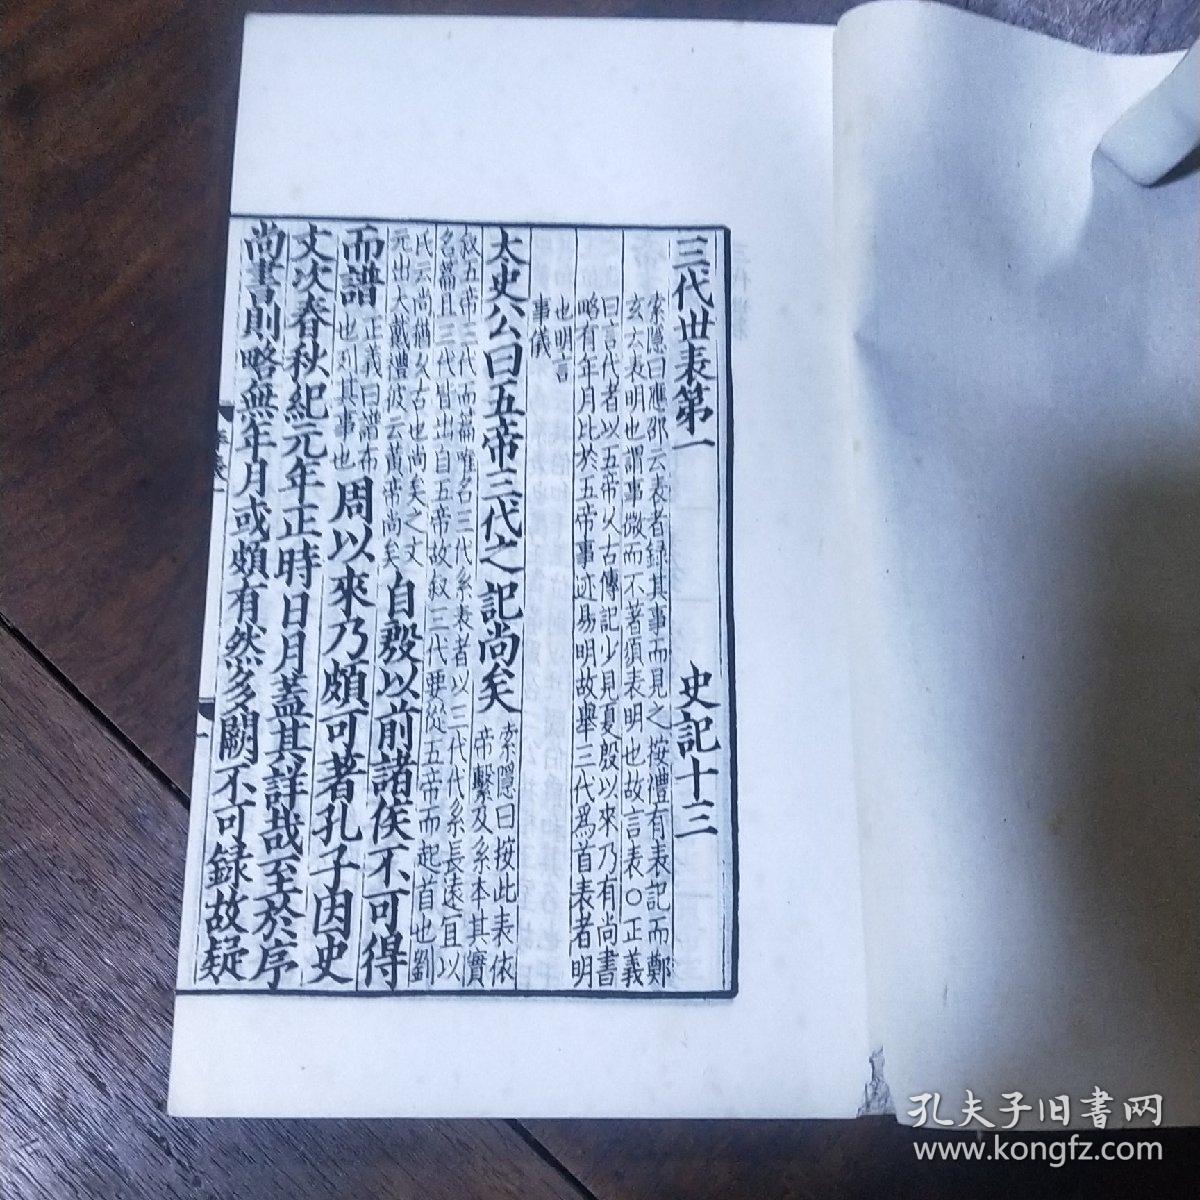 三代世表第一 史記十三
索隱曰應邵云表者錄其事而見之按禮有表記而鄭
玄云表明也謂事微而不著須表明也故言表〇正義
曰言代者以五帝久古傳記少見夏殷以來乃有尚書
略有年月比於五帝事迹易明故舉三代為首表者明
也明言
事儀
太史公曰五帝三代之記尚矣
索隱曰按此表依
帝繫及系本其實
叙五帝三代而篇唯名三代系表者以三代代系長遠宜以
名篇且三代皆出自五帝故叙三代要從五帝而起首也劉
氏云尚猶久古也尚矣之文
元出大戴禮彼云黃帝尚矣
自殷以前諸侯不可得
而譜
正義曰譜布
也列其事也
周以來乃頗可著孔子因史
文次春秋紀元年正時日月蓋其詳哉至於序
尚書則略無年月或頗有然多闕不可録故疑
孔夫子旧書网
www.kongfz.com